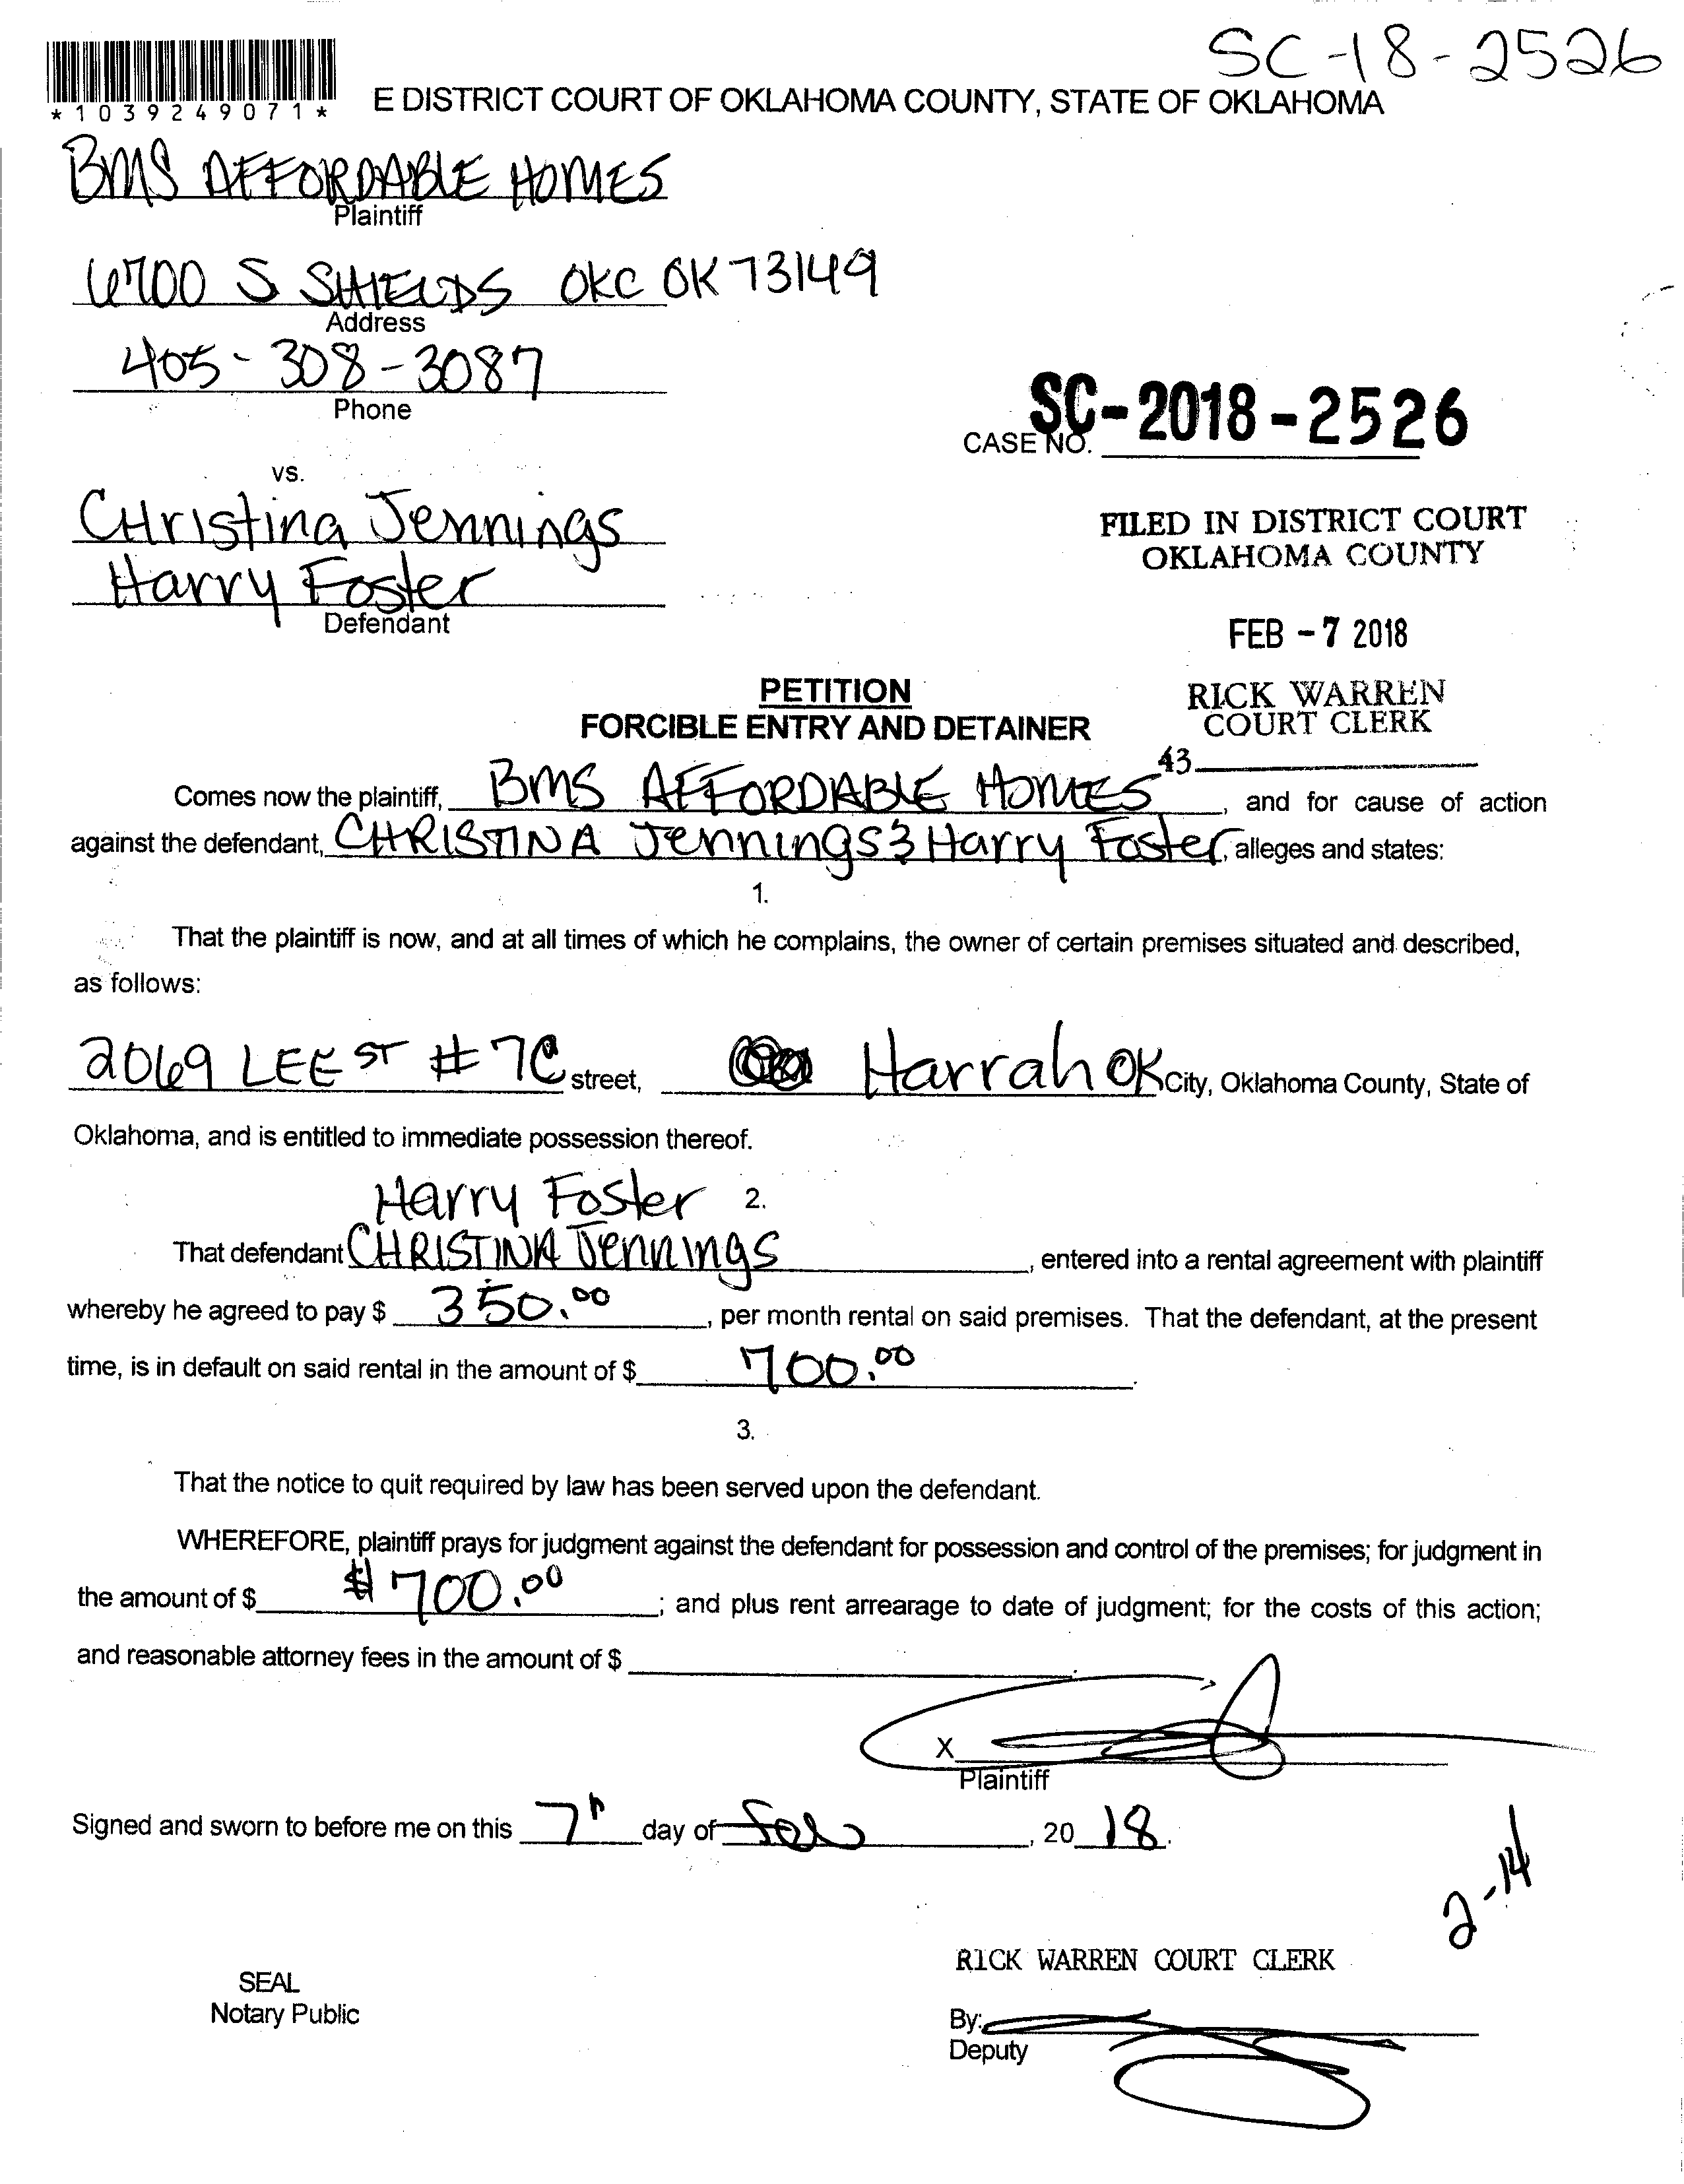 SC-18-2526
*1039249071*
E DISTRICT COURT OF OKLAHOMA COUNTY, STATE OF OKLAHOMA
BMS AFFORDABLE HOMES
Plaintiff
6700 S SHIELDS OKC OK 73149
Address
405-308-3087
Phone
SC-2018-2526
CASE NO.
vs.
CHristina Jennings
Harry Foster
Defendant
FILED IN DISTRICT COURT
OKLAHOMA COUNTY
FEB -7 2018
RICK WARREN
COURT CLERK
43
PETITION
FORCIBLE ENTRY AND DETAINER
Comes now the plaintiff, BMS AFFORDABLE HOMES, and for cause of action
against the defendant, CHRISTINA Jennings & Harry Foster, alleges and states:
1.
That the plaintiff is now, and at all times of which he complains, the owner of certain premises situated and described,
as follows:
2069 LEE ST #7C street, Harrah OK City, Oklahoma County, State of
Oklahoma, and is entitled to immediate possession thereof.
Harry Foster 2.
That defendant CHRISTINA Jennings, entered into a rental agreement with plaintiff
whereby he agreed to pay $ 350.00, per month rental on said premises. That the defendant, at the present
time, is in default on said rental in the amount of $ 700.00.
3.
That the notice to quit required by law has been served upon the defendant.
WHEREFORE, plaintiff prays for judgment against the defendant for possession and control of the premises; for judgment in
the amount of $ $700.00; and plus rent arrearage to date of judgment; for the costs of this action;
and reasonable attorney fees in the amount of $
X
Plaintiff
Signed and sworn to before me on this 7th day of Feb, 2018.
2-14
RICK WARREN COURT CLERK
SEAL
Notary Public
By:
Deputy